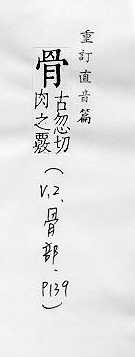 重訂直音篇
骨
古忽切
肉之覈
(V.2.骨部.P139)